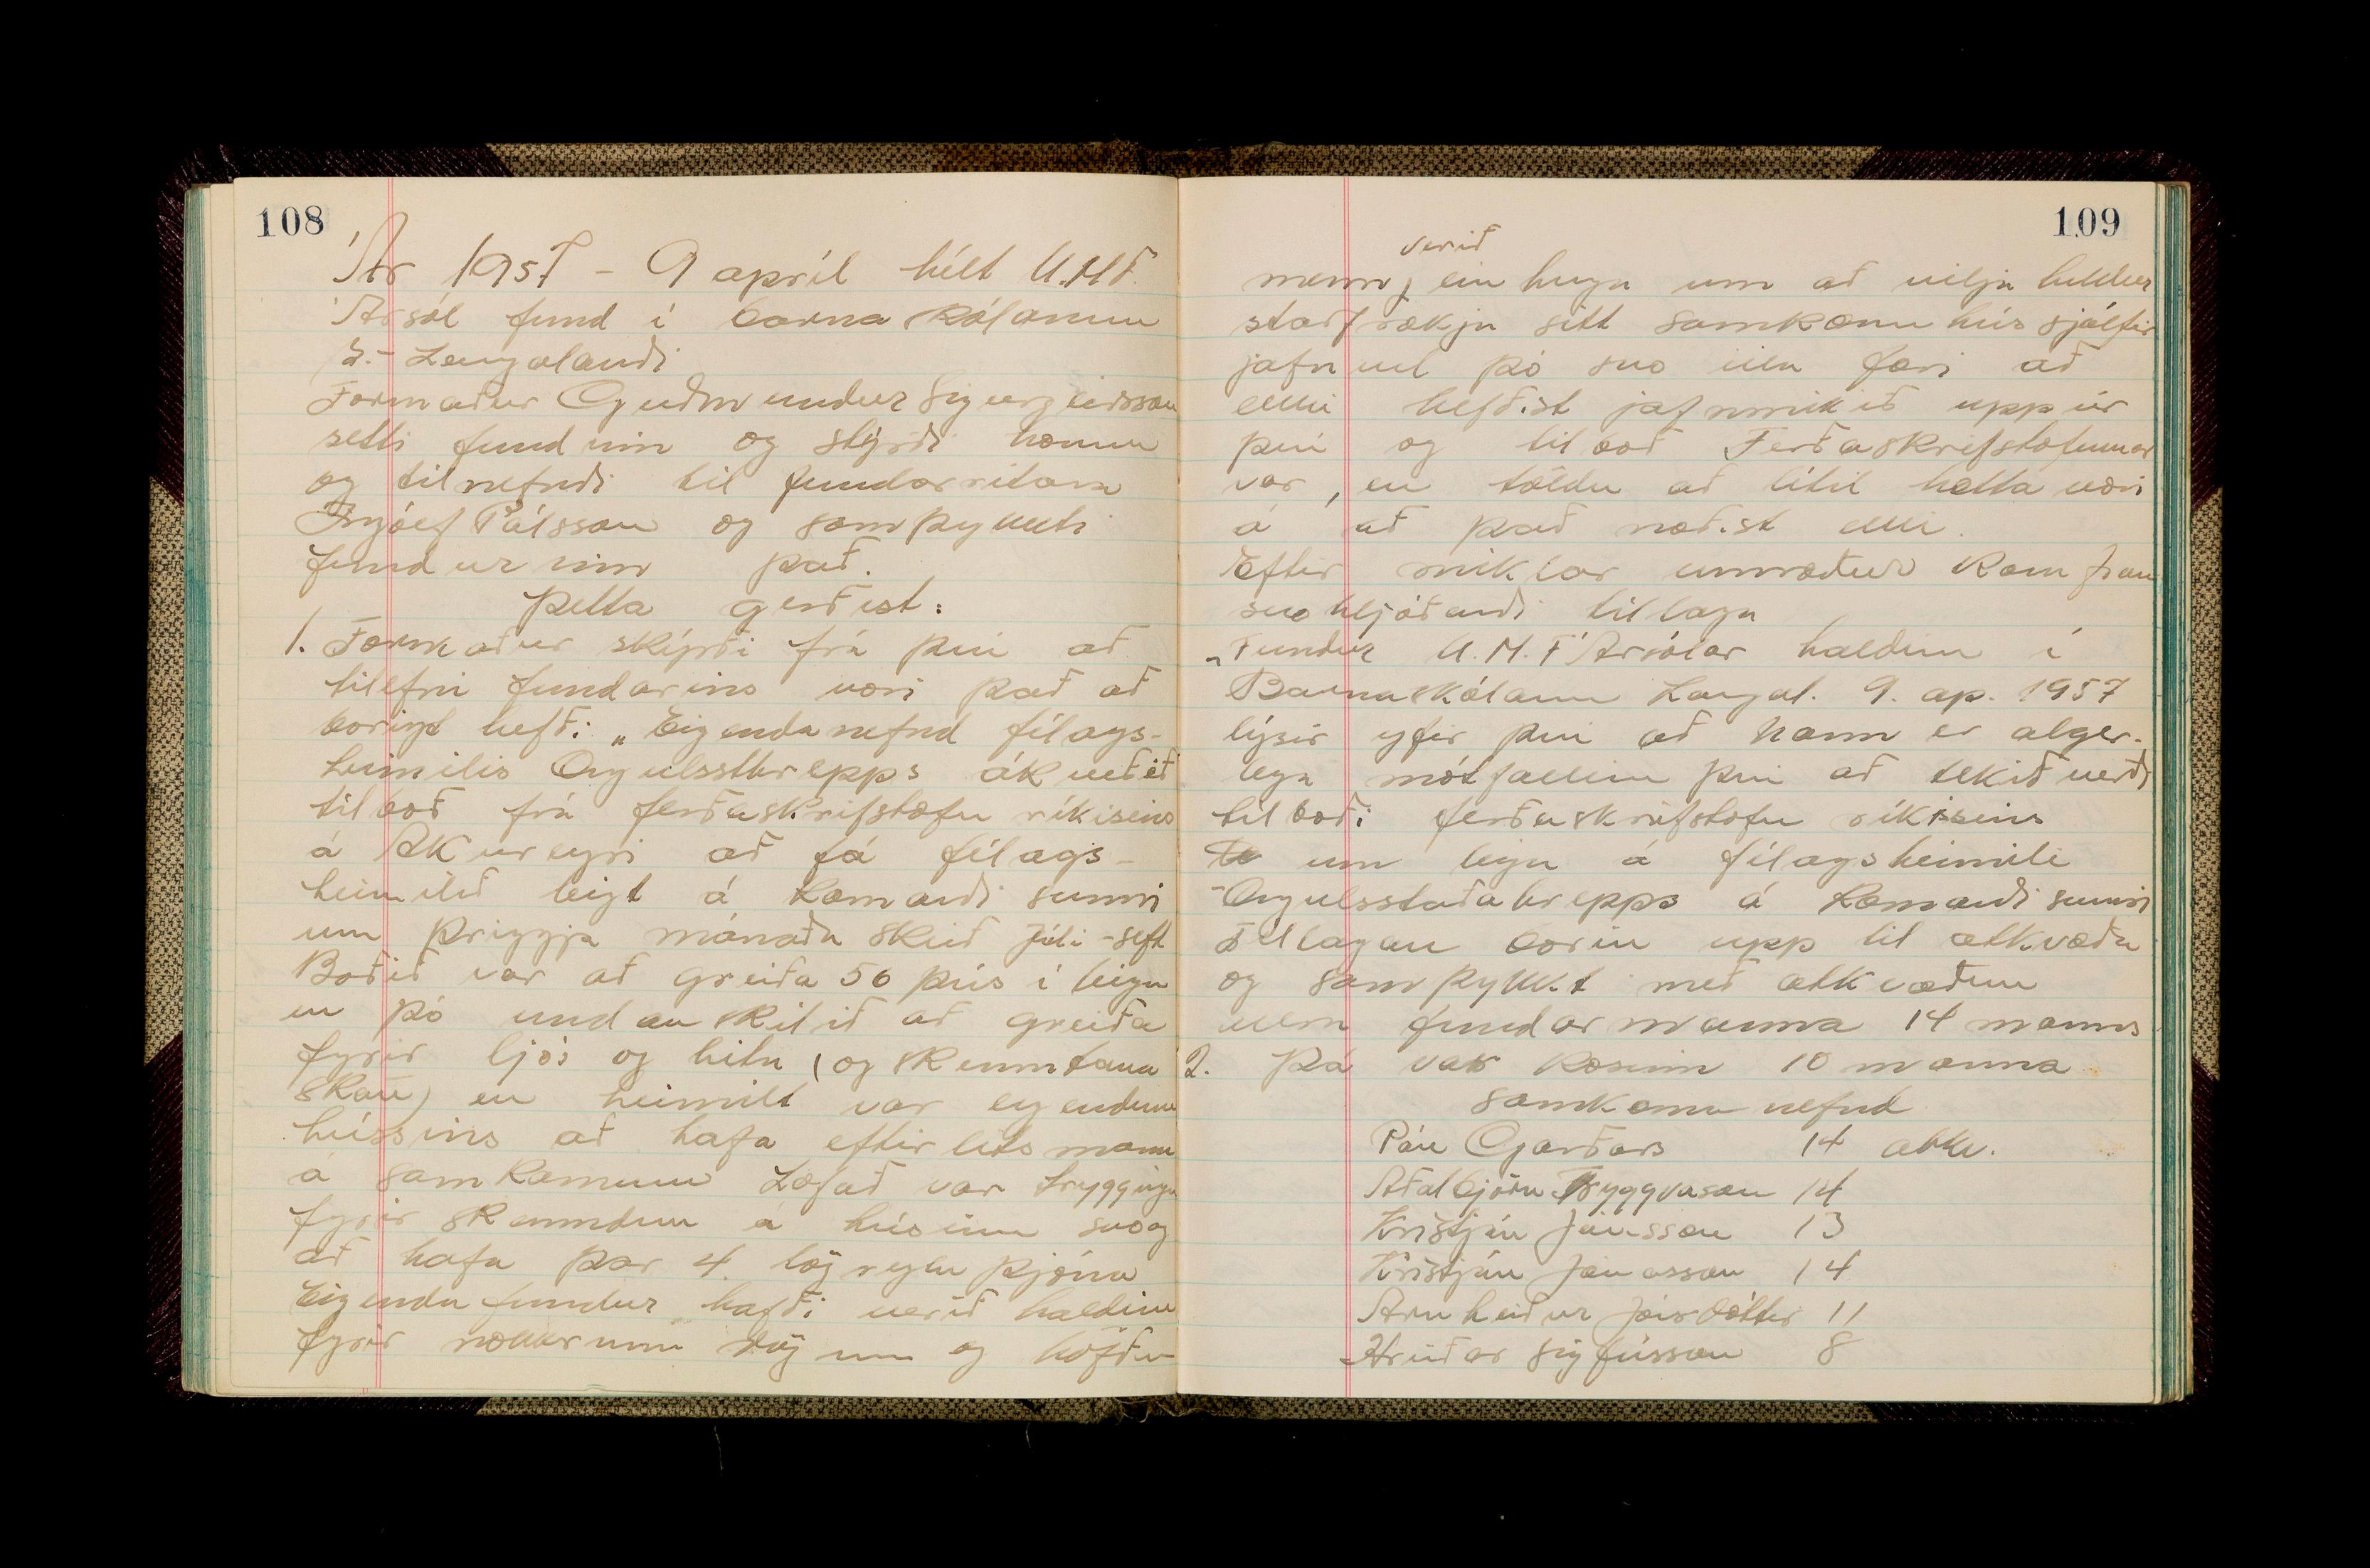 108
Ár 1957 - 9 apríl hélt U.M.F.
Ársól fund í barnaskólanum
S.- Laugalandi
Formaður Guðmundur Sigurgeirsson
setti fundinn og stýrði honum
og tilnefndi til fundarritara
Brjóef Pálsson og samþykkti
fundurinn það.
Þetta gerðist:
1. Formaður skýrði frá því að
tilefni fundarins væri það að
borizt hefði „Eigendanefnd félags-
heimilis Öngulssthrepps ákveðið
tilboð frá ferðaskrifstofu ríkisins
á Akureyri að fá félags-
heimilið leigt á komandi sumri
um þriggja mánaða skeið Júli - seft
Boðið var að greiða 50 þús í leigu
en þó undanskilið að greiða
fyrir ljós og hita (og skemmtana
skatt) en heimilt var eigendum
hússins að hafa eftirlitsmann
á samkomum Lofað var tryggingu
fyrir skemmdum á húsinu svo og
að hafa þar 4 lögregluþjóna
Eigendafundur hafði verið haldinn
fyrir nokkrumm dögum og höfðu
109
verið
menn, einhuga um að vilja heldur
starfrækja sitt samkomuhús sjálfir
jafnvel þó svo illa færi að
ekki hefðist jafnmikið uppúr
því og tilboð Ferðaskrifstofunnar
var, en töldu að lítil hætta væri
á að það næðist ekki.
Eftir miklar umræður kom fram
svohljóðandi tillaga
„Fundur U.M.F Ársólar haldinn í
Barnaskólanum Laugal. 9. ap. 1957
lýsir yfir því að hann er alger-
lega mótfallinn því að tekið verði
tilboði ferðaskrifstofu ríkisins
um leigu á félagsheimili
Öngulsstaðahrepps á komandi sumri
Tillagan borin upp til atkvæða
og samþykkt með atkvæðum
allra fundarmanna 14 manns
2. Þá var kosinn 10 manna
samkomunefnd
Páll Garðars 14 atkv.
Aðalbjörn Tryggvason 14
Kristján Jónsson 13
Kristján Jónasson 14
Arnheiður Jónsdóttir 11
Hreiðar Sigfússon 8